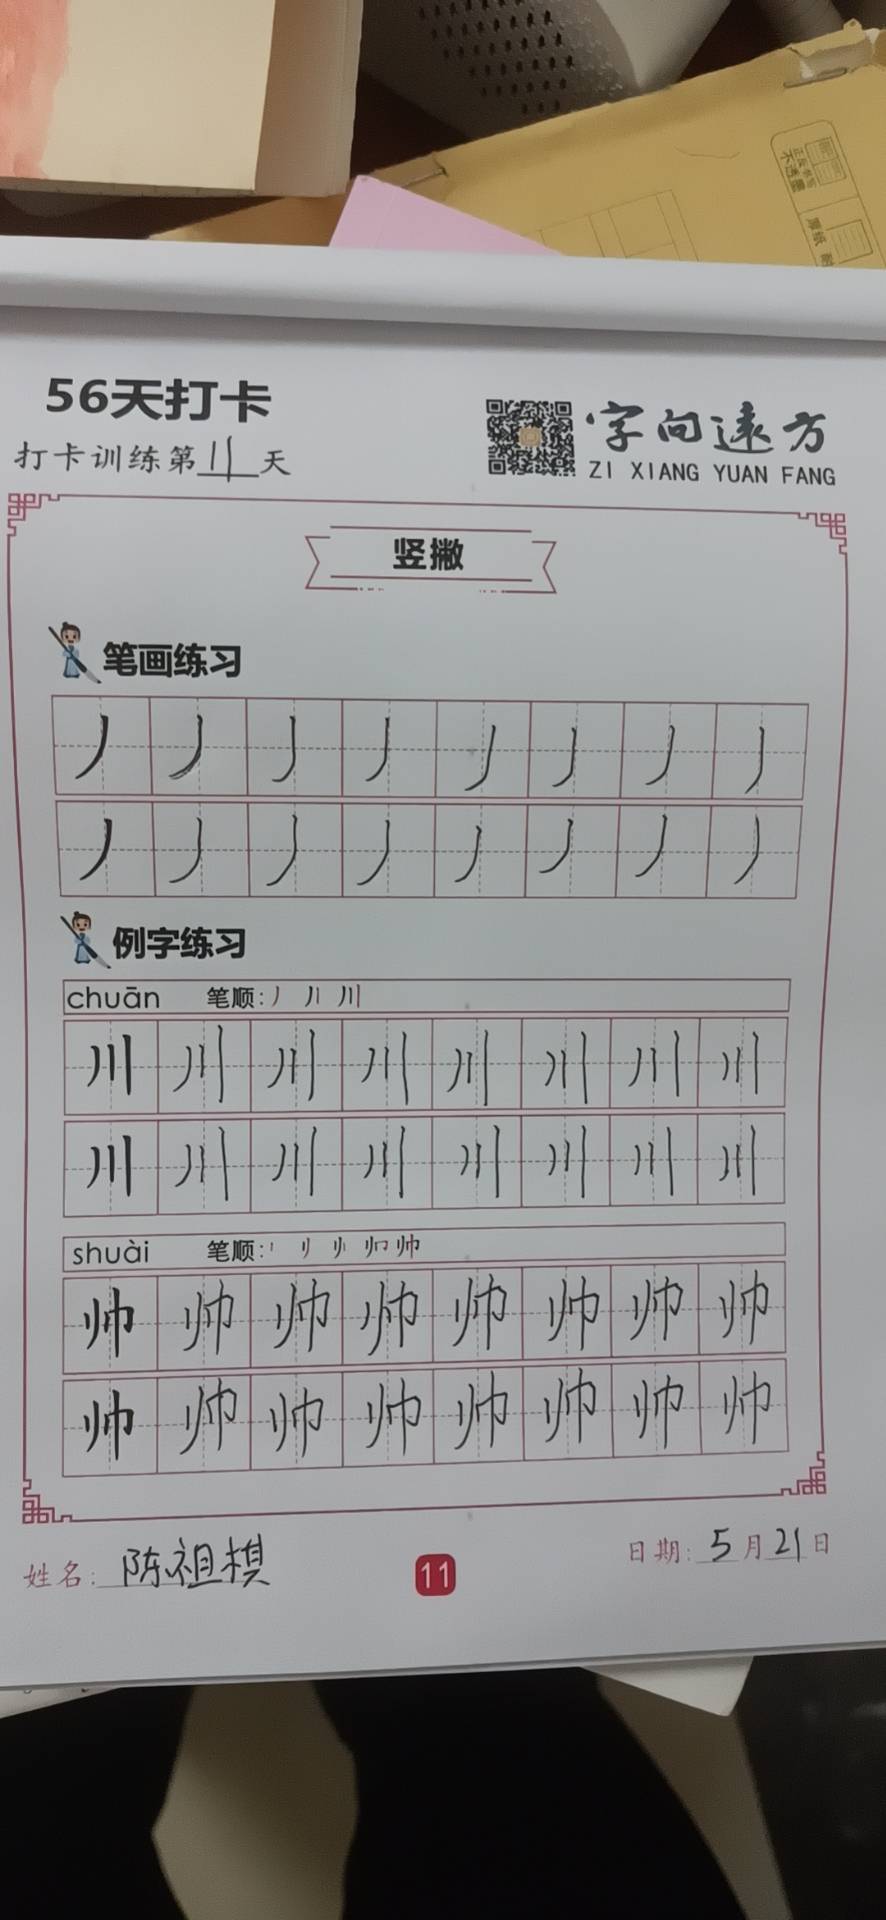 56天打卡
打卡训练第11天
字向远方
ZI XIANG YUAN FANG
竖撇
笔画练习
丿 丿 丿 丿 丿 丿 丿 丿
丿 丿 丿 丿 丿 丿 丿 丿
例字练习
chuān 笔顺:丿 丿丨 川
川 川 川 川 川 川 川 川
川 川 川 川 川 川 川 川
shuài 笔顺: 帅
帅 帅 帅 帅 帅 帅 帅 帅
帅 帅 帅 帅 帅 帅 帅 帅
姓名:陈祖棋
11
日期:5月21日